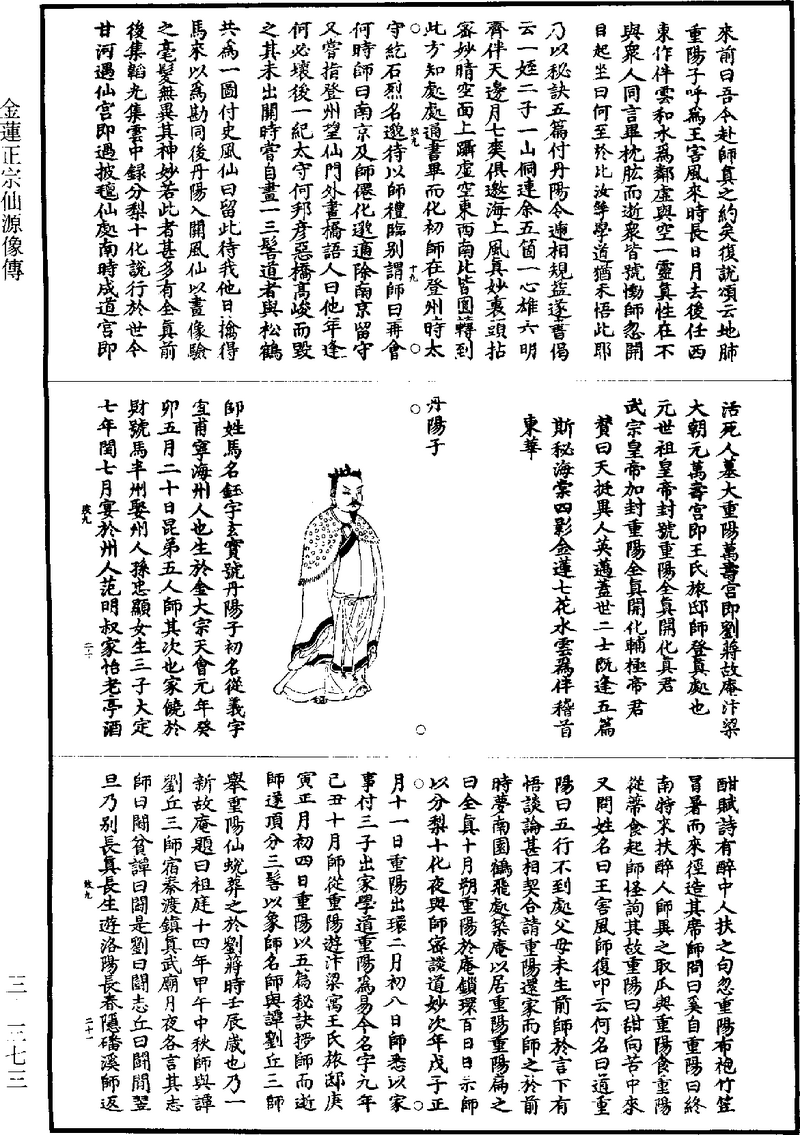 來前曰吾今赴師真之約矣復說頌云地肺
重陽子呼爲王害風來時長日月去後任西
東作伴雲和水爲鄰虛與空一靈真性在不
與衆人同言畢枕肱而逝衆皆號慟師忽開
目起坐曰何至於此汝等學道猶未悟此耶
乃以秘訣五篇付丹陽令遞相規益遂書偈
云一姪二子一山侗連余五箇一心雄六明
齊伴天邊月七爽俱邀海上風真妙裏頭拈
密妙晴空面上躡虛空東西南北皆圓轉到
此方知處處通書畢而化初師在登州時太
守紇石烈名邈待以師禮臨别謂師曰再會
何時師曰南京及師僊化邈適除南京留守
又嘗指登州望仙門外畫橋語人曰他年逢
何必壞後一紀太守何邦彦惡橋高峻而毀
之其未出關時嘗自畫一三髻道者與松鶴
共爲一圖付史風仙曰留此待我他日擒得
馬來以爲勘同後丹陽入關風仙以畫像驗
之毫髮無異其神妙若此者甚多有全真前
後集韜光集雲中録分梨十化説行於世今
甘河遇仙宮即過披氊仙處南時成道宮即
活死人墓大重陽萬壽宮即劉蔣故庵汴梁
大朝元萬壽宮即王氏旅邸師登真處也
元世祖皇帝封號重陽全真開化真君
武宗皇帝加封重陽全真開化輔極帝君
贊曰天挺異人英邁蓋世二士既逢五篇
斯秘海棠四影金蓮七花水雲爲伴稽首
東華
丹陽子
師姓馬名鈺字玄寶號丹陽子初名從義字
宜甫寧海州人也生於金太宗天會元年癸
卯五月二十日昆弟五人師其次也家饒於
財號馬半州娶州人孫忠顯女生三子大定
七年閏七月宴於州人范明叔家怡老亭酒
酣賦詩有醉中人扶之句忽重陽布袍竹笠
冒暑而來徑造其席師問曰奚自重陽曰終
南特來扶醉人師異之取瓜與重陽食重陽
從蒂食起師怪詢其故重陽曰甜向苦中來
又問姓名曰王害風師復叩云何名曰道重
陽曰五行不到處父母未生前師於言下有
悟談論甚相契合請重陽還家而師之於前
時夢南園鶴飛處築庵以居重陽重陽篇之
曰全真十月朔重陽於庵鎖環百日日示師
以分梨十化夜與師密談道妙次年戊子正
月十一日重陽出環二月初八日師悉以家
事付三子出家學道重陽爲易今名字元年
己丑十月師從重陽遊汴梁寓王氏旅邸庚
寅正月初四日重陽以五篇秘訣授師而逝
師遂頂分三髻以象師名師與譚劉丘三師
舉重陽仙蛻葬之於劉蔣時壬辰歲也乃一
新故庵題曰祖庭十四年甲午中秋師與譚
劉丘三師宿秦渡鎮真武廟月夜各言其志
師曰鬬貧譚曰鬬是劉曰鬬志丘曰鬬閒翌
旦乃别長真長生遊洛陽長春隱磻溪師返
金蓮正宗仙源像傳
三 三七三